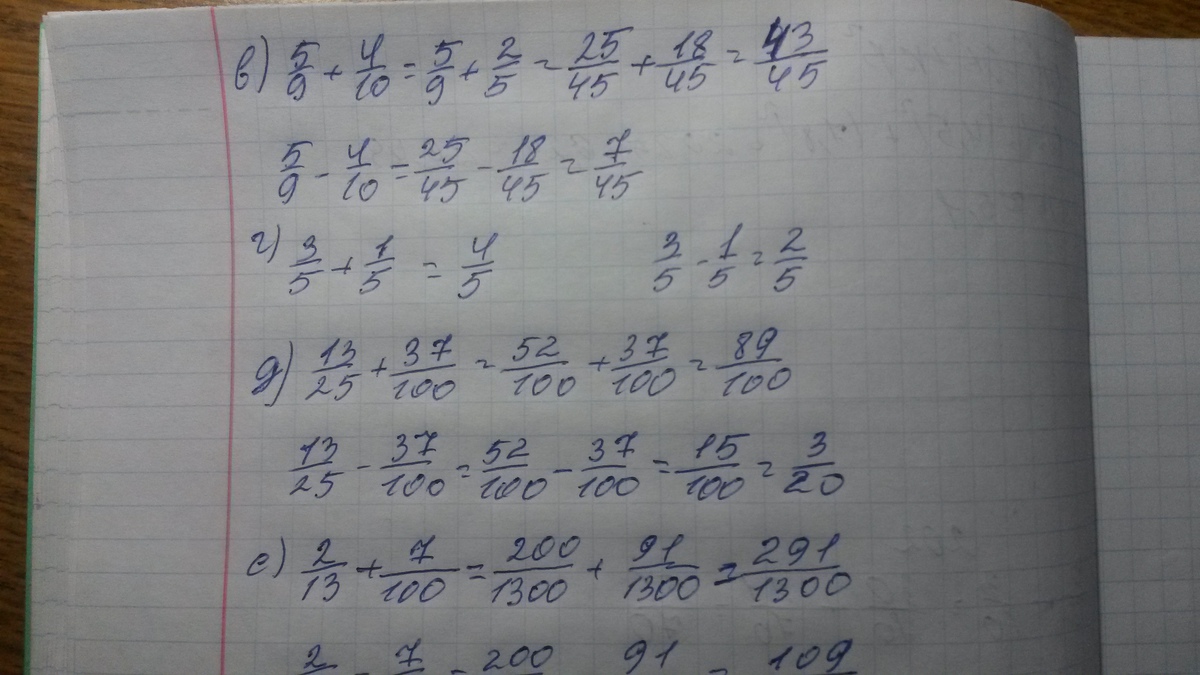 в) 5/9 + 4/10 = 5/9 + 2/5 = 25/45 + 18/45 = 43/45
5/9 - 4/10 = 25/45 - 18/45 = 7/45
г) 3/5 + 1/5 = 4/5 3/5 - 1/5 = 2/5
д) 13/25 + 37/100 = 52/100 + 37/100 = 89/100
13/25 - 37/100 = 52/100 - 37/100 = 15/100 = 3/20
е) 2/13 + 7/100 = 200/1300 + 91/1300 = 291/1300
2 - 7 = 200 91 = 109